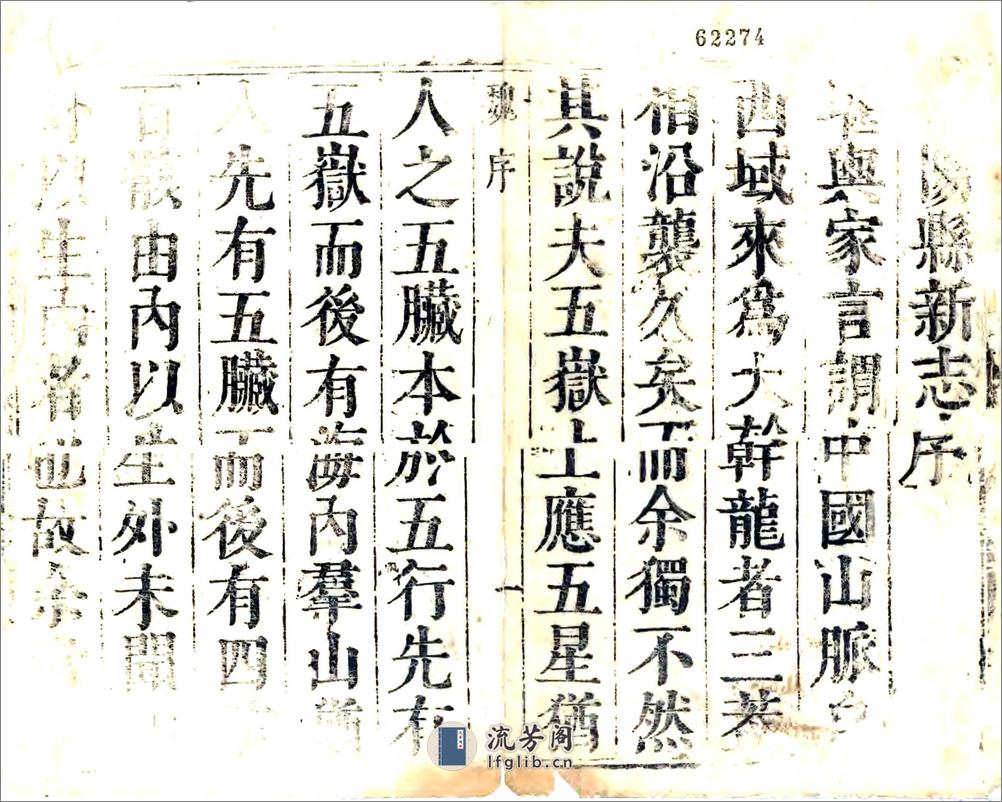 62274
陽縣新志序
堪輿家言謂中國山脈自
西域來爲大幹龍者三其
相沿襲久矣而余獨不然
其說夫五嶽上應五星猶
魏序
一
人之五臟本於五行先有
五嶽而後有海內羣山猶
人先有五臟而後有四
百骸由內以生外未聞
外以生內者也故余
流芳阁
lfglib.cn